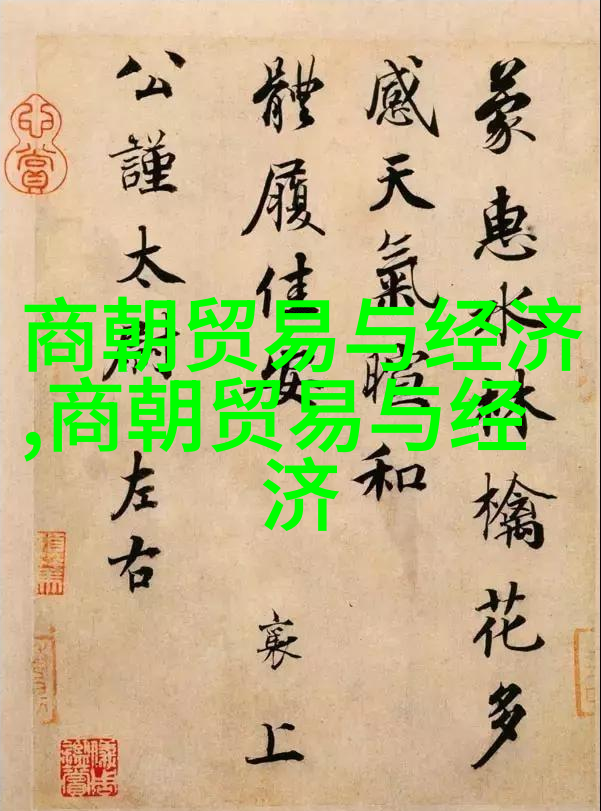 商朝贸易与经济
,商朝贸易与经
济
蒙惠水林檎花多
感天氣暄和
體履佳安
襄上
公謹太尉左右